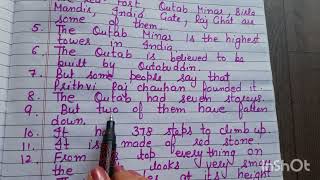 Red fort, Qutab Minar, Birla
Mandir, India Gate, Raj Ghat are
some of them.
5. The Qutab Minar is the highest
tower in India.
6. The Qutab is believed to be
built by Qutabuddin.
7. But some people say that
Prithvi Raj Chauhan founded it.
8. The Qutab had seven storeys.
9. But two of them have fallen
down.
10. It has 378 steps to climb up.
11. It is made of red stone
12. From its top everything on
the looks very small
The at its height
Shot